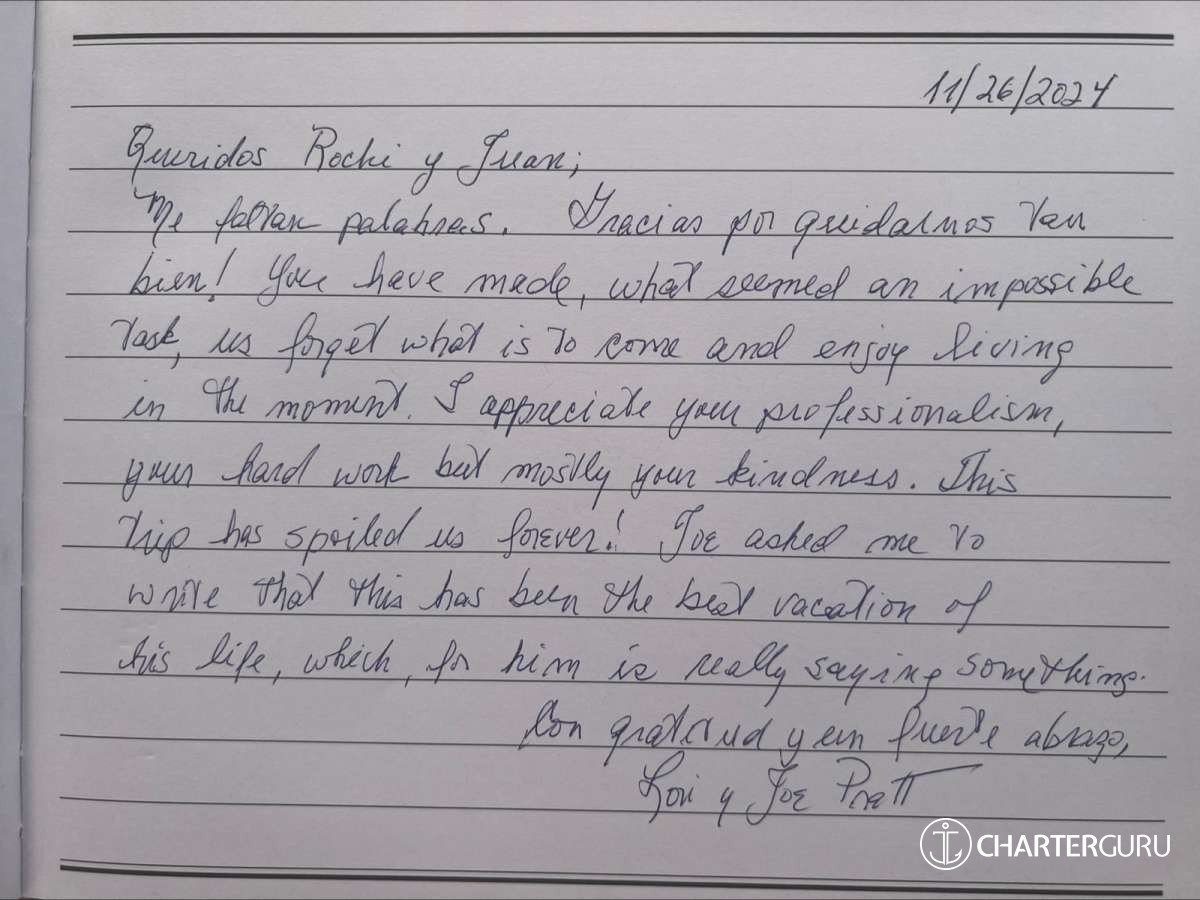 11/26/2024
Queridos Rochi y Juan;
Me faltan palabras. Gracias por guidarnos tan
bien! You have made, what seemed an impossible
task, us forget what is to come and enjoy living
in the moment. I appreciate your professionalism,
your hard work but mostly your kindness. This
trip has spoiled us forever! Joe asked me to
write that this has been the best vacation of
his life, which, for him is really saying something.
Con gratitud y un fuerte abrazo,
Lori y Joe Pratt
CHARTERGURU